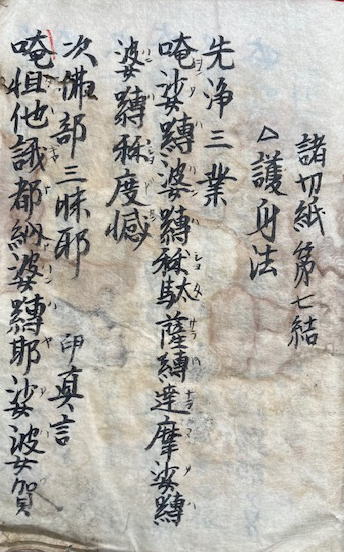 諸切紙第七結
△護身法
先浄三業
唵娑嚩婆嚩秫馱薩嚩達摩娑嚩
婆嚩秫度憾
次佛部三昧耶 印真言
唵怛他誐都納婆嚩耶娑婆賀